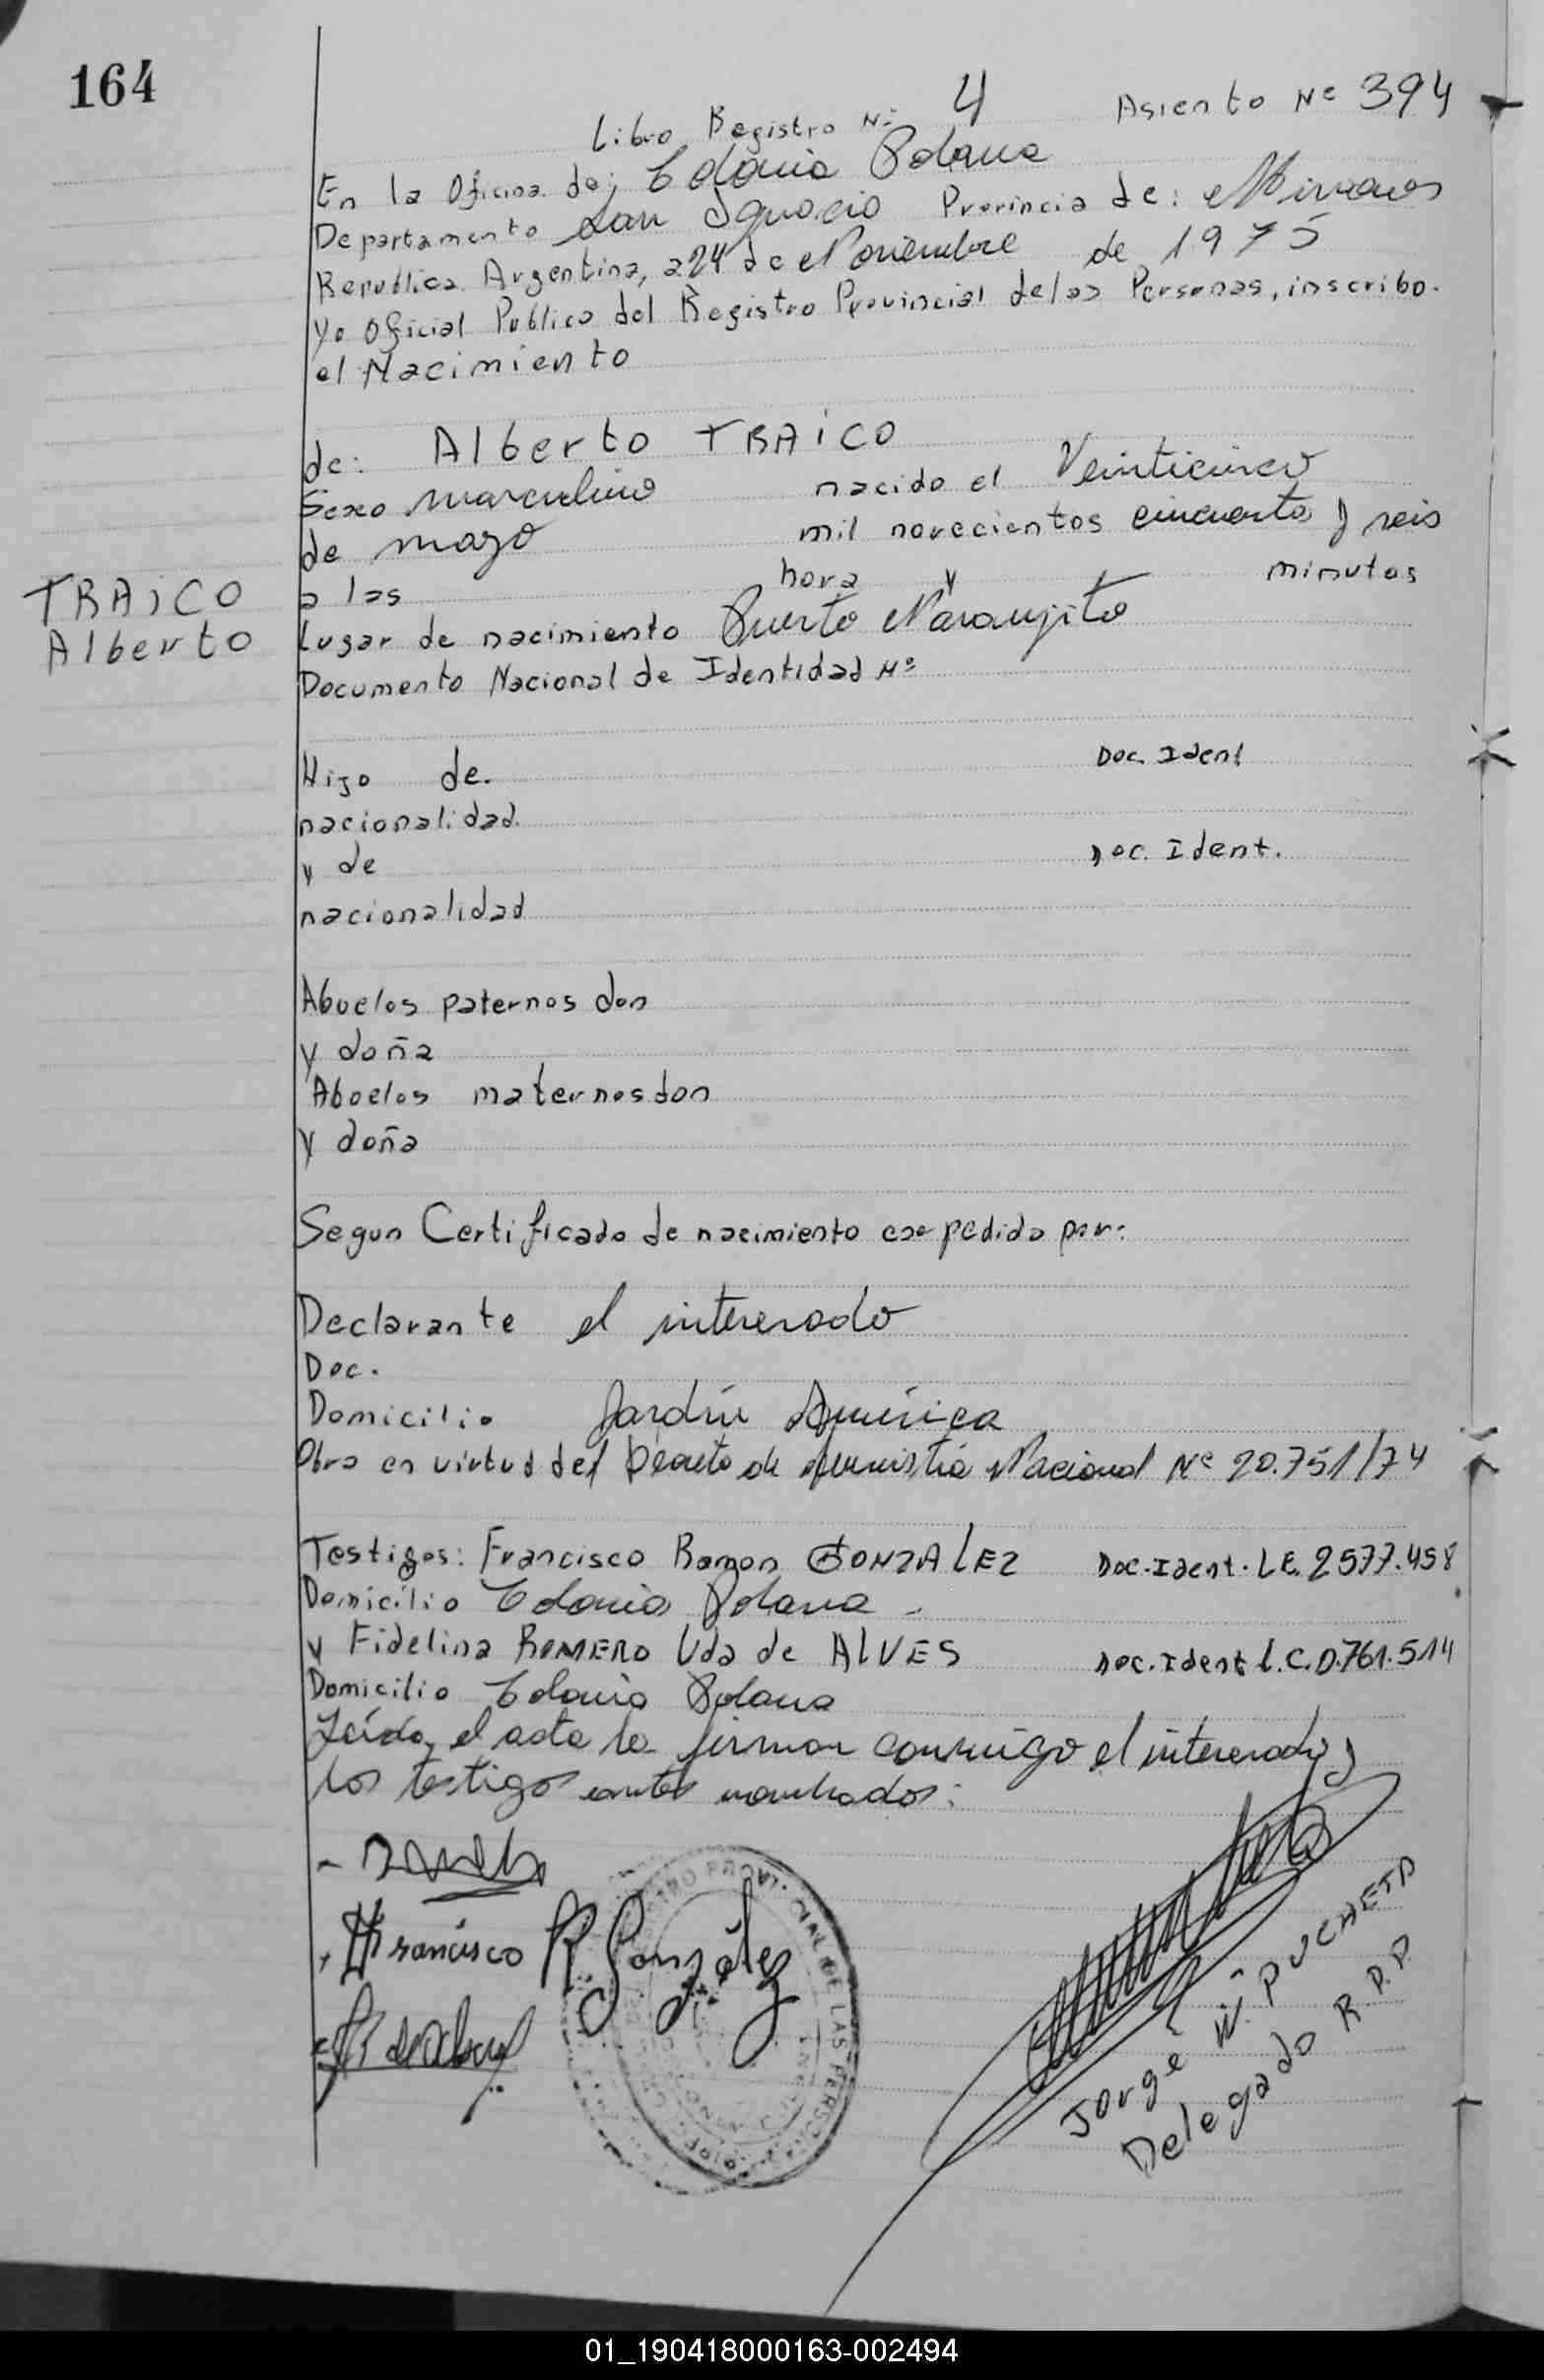 164
Libro Registro Nº 4 Asiento Nº 394
En la Oficina de; Colonia Polana
Departamento San Ignacio Provincia de: Misiones
Republica Argentina, a 24 de Noviembre de 1975
Yo Oficial Publico del Registro Provincial de las Personas, inscribo.
el Nacimiento
de: Alberto TRAiCO
Sexo masculino nacido el Veinticinco
de mayo mil novecientos cincuenta y seis
a las hora y minutos
TRAiCO
Alberto
Lugar de nacimiento Puerto Naranjito
Documento Nacional de Identidad Nº
Hijo de. Doc. Ident
nacionalidad
y de Doc. Ident.
nacionalidad
Abuelos paternos don
y doña
Abuelos maternos don
y doña
Segun Certificado de nacimiento expedido por:
Declarante el interesado
Doc.
Domicilio Jardín América
Obra en virtud del Decreto de Amnistía Nacional Nº 20.751/74
Testigos: Francisco Ramon GONZALEZ Doc. Ident. L.E. 2577.458
Domicilio Colonia Polana
y Fidelina ROMERO Vda de ALVES Doc. Ident L.C. 0.761.514
Domicilio Colonia Polana
Leída el acta la firman conmigo el interesado y
los testigos antes nombrados:
Francisco R. González
DE LAS PERSONAS
Jorge W. PUCHETA
Delegado R.P.P.
01_190418000163-002494